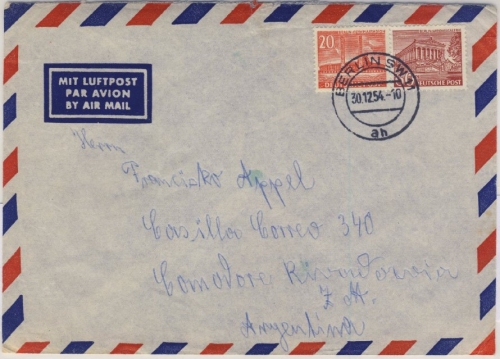 MIT LUFTPOST
PAR AVION
BY AIR MAIL
20
DEUTSCHE POST
BERLIN SW 11
30.12.54.-10
ah
Herrn
Francisko Appel
Casilla Correo 340
Comodore Rivadavia
Z. M.
Argentina